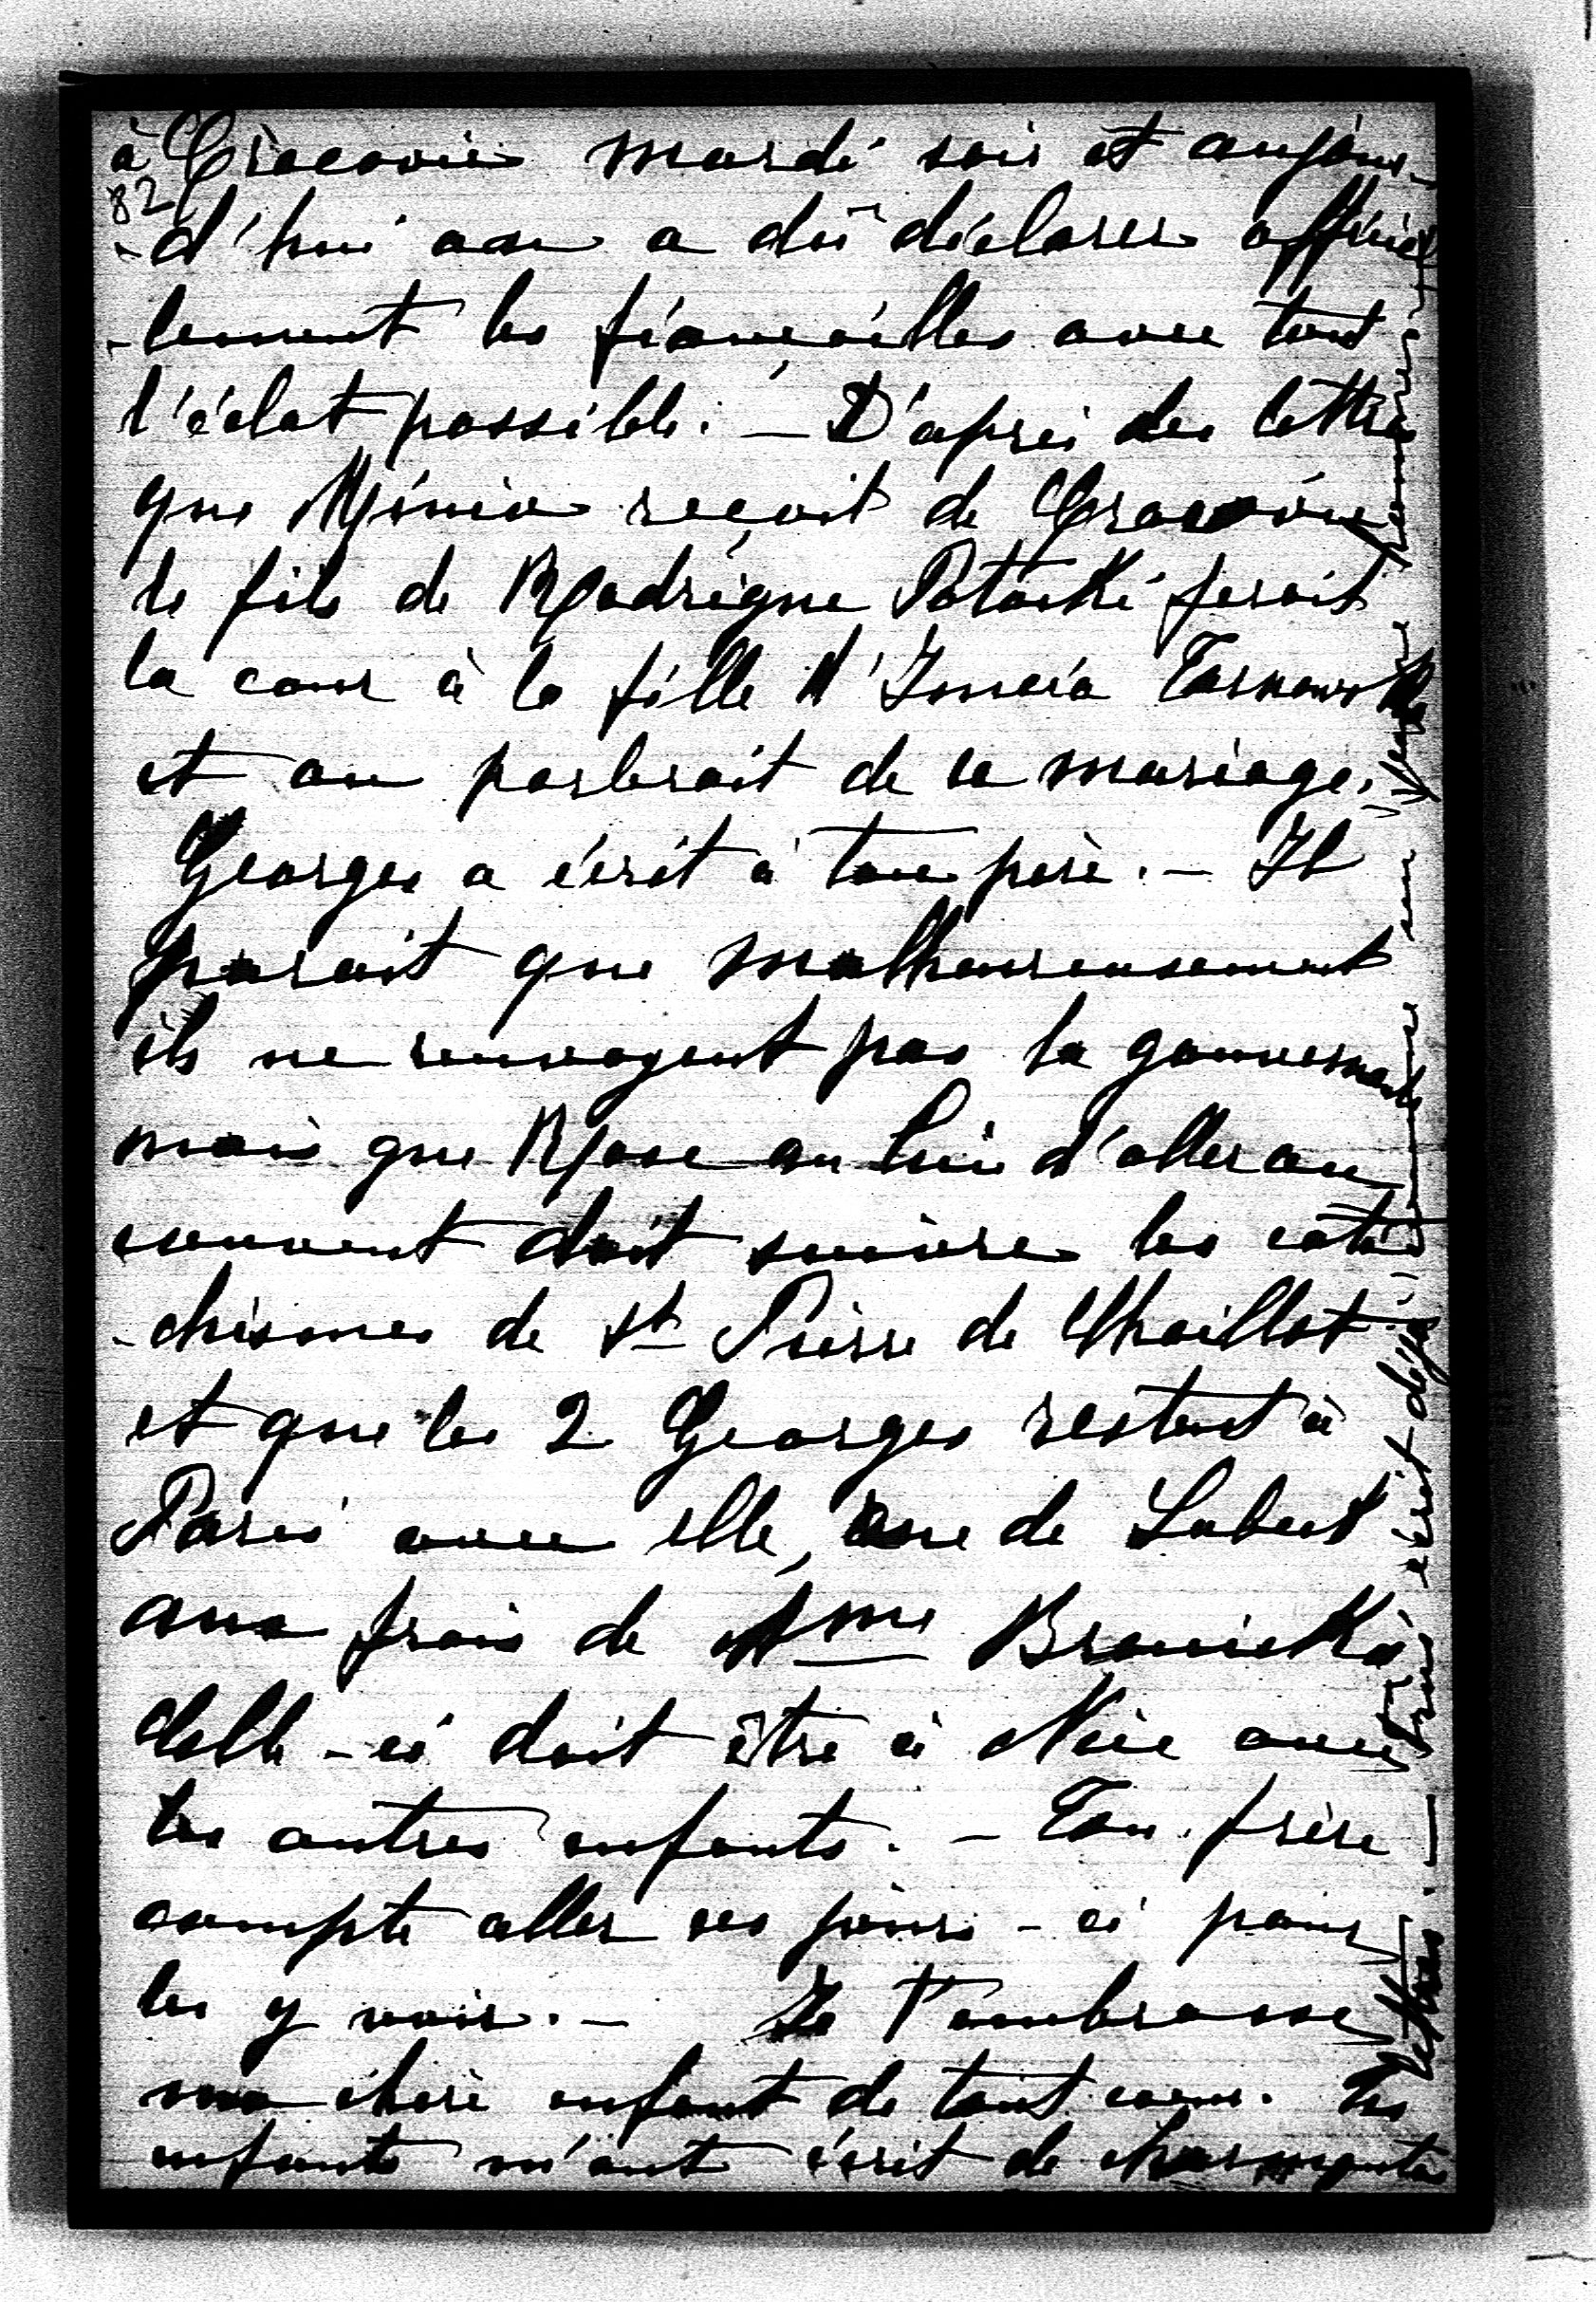 à Cracovie mardi soir et aujour-
82
-d'hui on a dû déclarer officiel
-lement les fiançailles avec tout
l'éclat possible. — D'après des lettres
que Minia reçoit de Cracovie
le fils de Rodrigue Potocki ferait
la cour à la fille d'Imera Tarnowski
et on parlerait de ce mariage.
Georges a écrit à ton père. — Il
parait que malheureusement
ils ne renvoyent pas la gouvernante
mais que Rose au lieu d'aller au
couvent doit suivre les caté
-chismes de St Pierre de Chaillot
et que les 2 Georges restent à
Paris avec elle, rue de Lubeck
aux frais de Mme Branicka
Celle-ci doit être à Nice avec
les autres enfants. — Ton frère
compte aller ces jours-ci pour
les y voir. — Je t'embrasse
ma chère enfant de tout cœur. Les
enfants m'ont écrit de charmantes
lettres. — écrit déjà